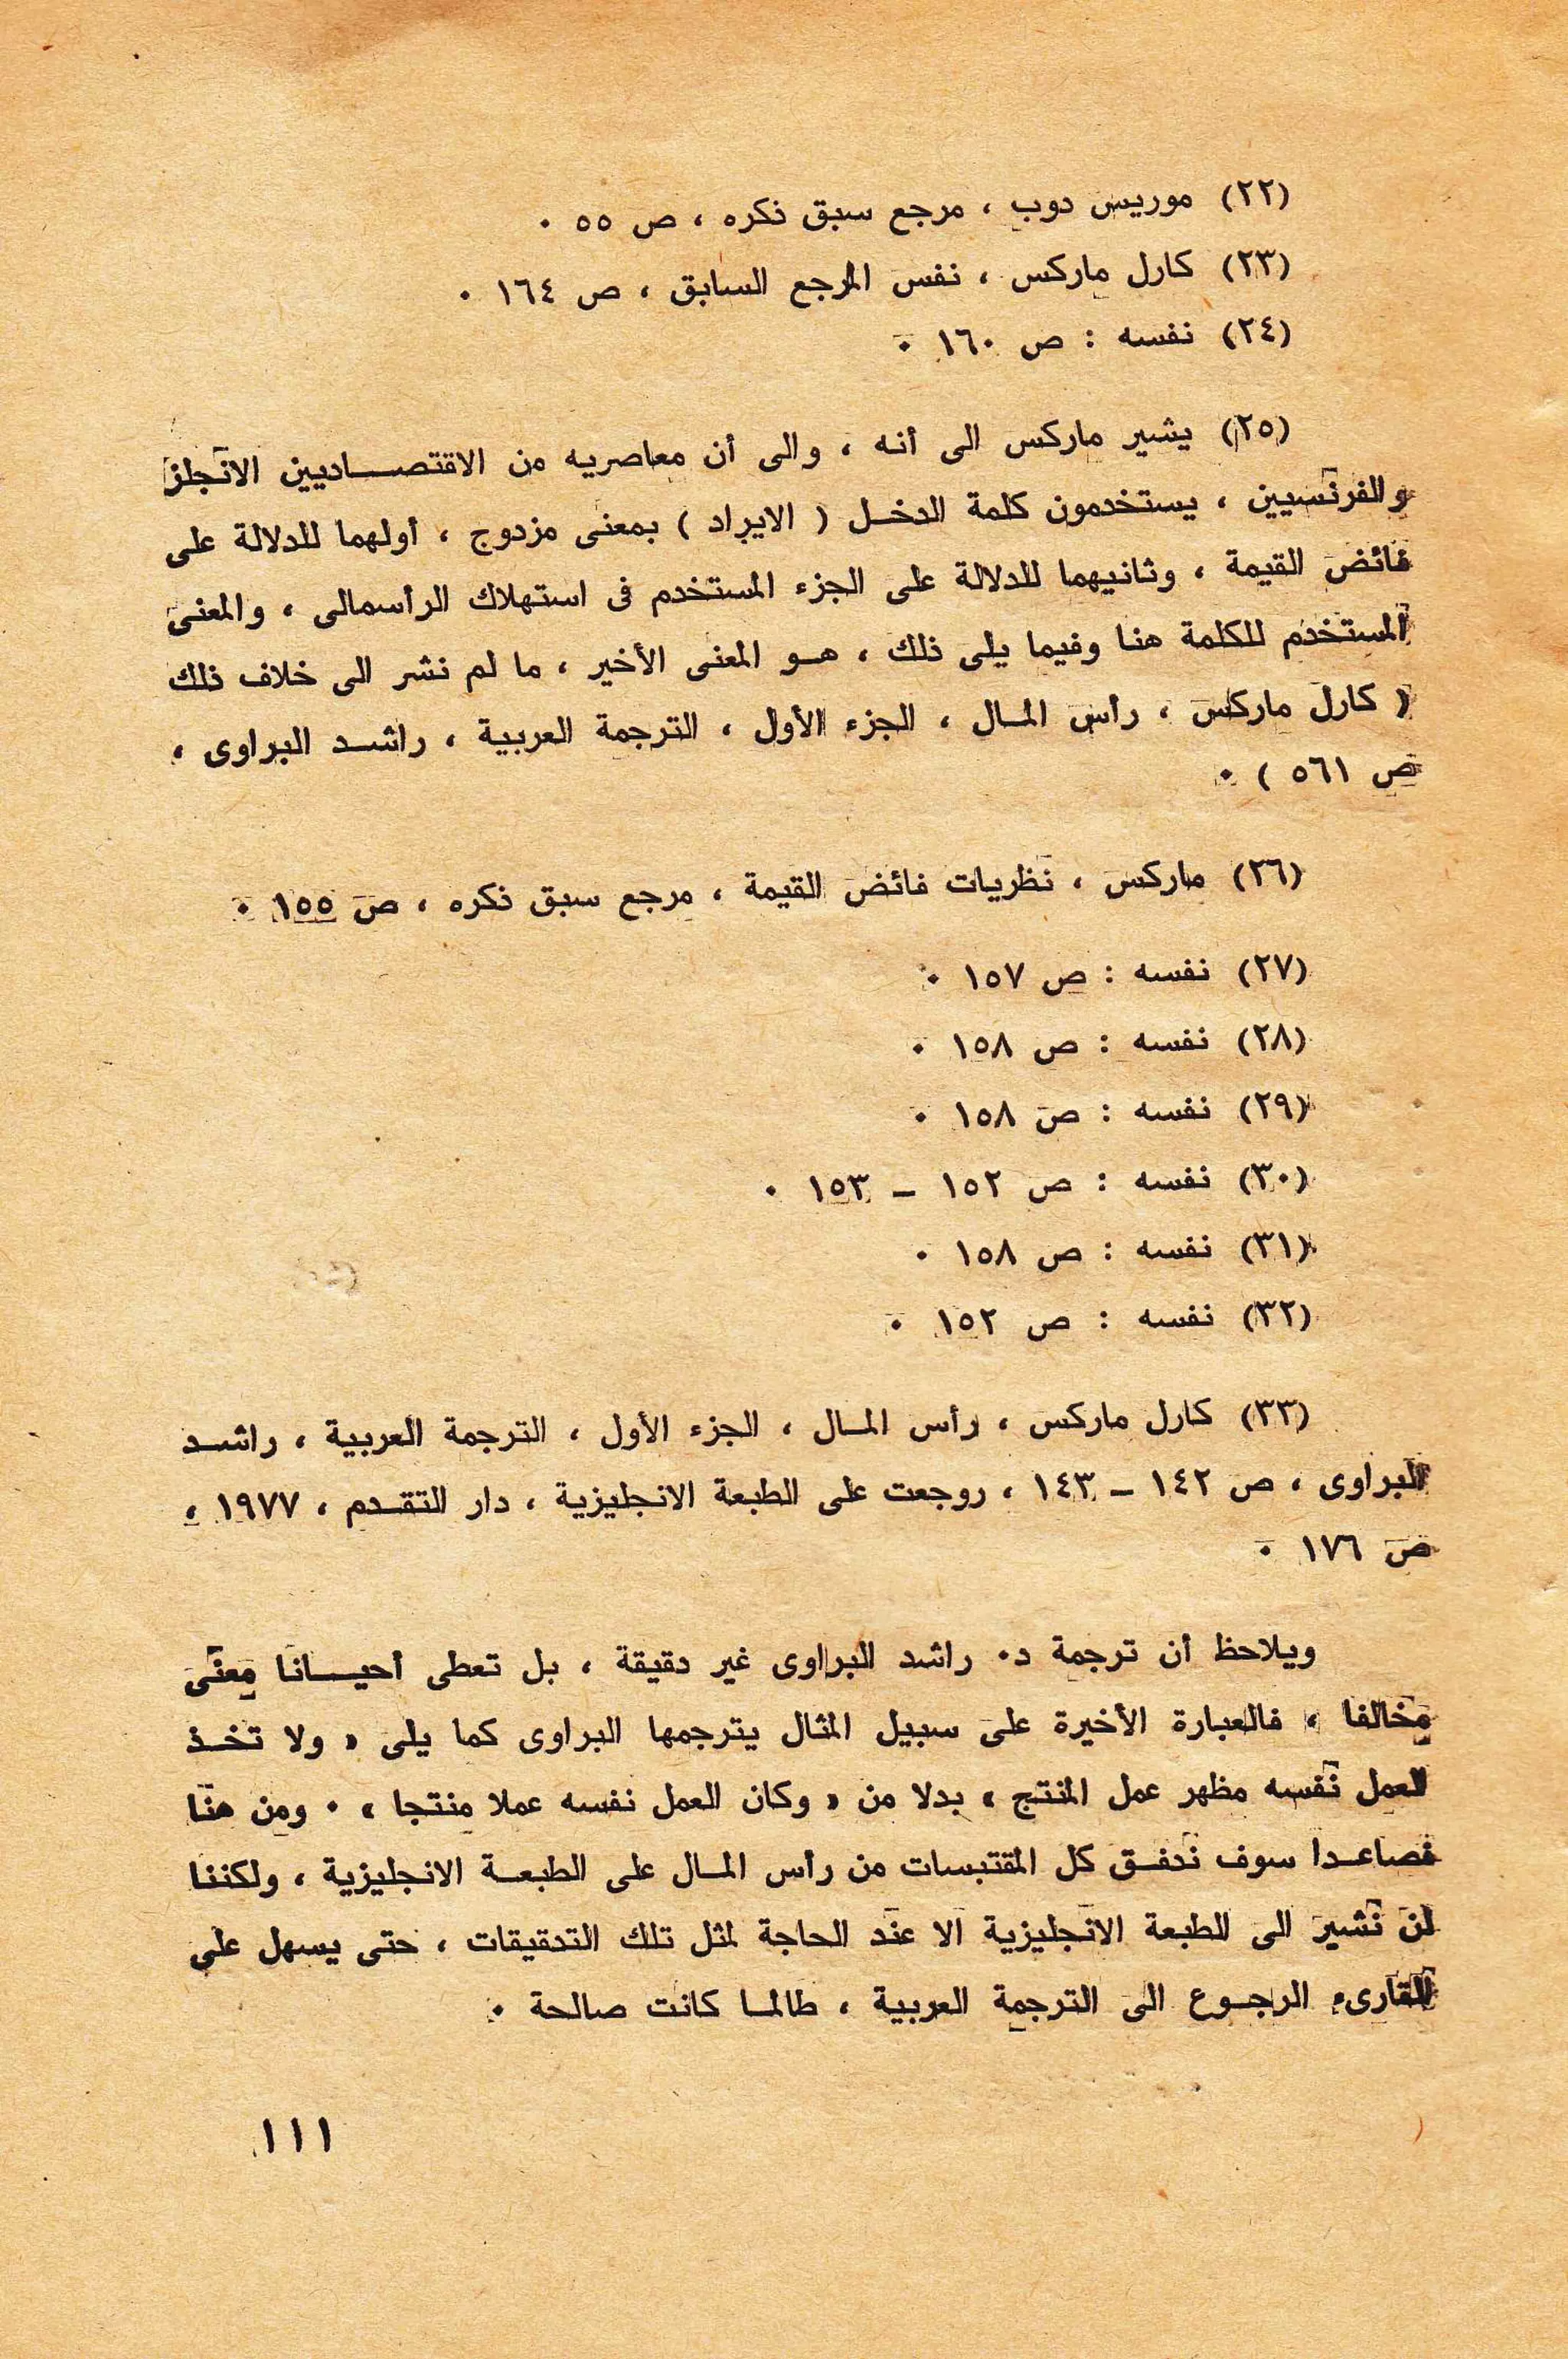 (٢٢) موريس دوب ، مرجع سبق ذكره ، ص ٥٥ ٠
(٢٣) كارل ماركس ، نفس المرجع السابق ، ص ١٦٤ ٠
(٢٤) نفسه : ص ١٦٠ ٠
(٢٥) يشير ماركس الى أنه ، والى أن معاصريه من الاقتصــاديين الانجلز
والفرنسيين ، يستخدمون كلمة الدخـل ( الايراد ) بمعنى مزدوج ، أولهما للدلالة على
فائض القيمة ، وثانيهما للدلالة على الجزء المستخدم فى استهلاك الرأسمالى ، والمعنى
المستخدم للكلمة هنا وفيما يلى ذلك ، هـو المعنى الأخير ، ما لم نشر الى خلاف ذلك
( كارل ماركس ، رأس المـال ، الجزء الأول ، الترجمة العربية ، راشـد البراوى ،
ص ٥٦١ ) ٠
(٢٦) ماركس ، نظريات فائض القيمة ، مرجع سبق ذكره ، ص ١٥٥ ٠
(٢٧) نفسه : ص ١٥٧ ٠
(٢٨) نفسه : ص ١٥٨ ٠
(٢٩) نفسه : ص ١٥٨ ٠
(٣٠) نفسه : ص ١٥٢ ــ ١٥٣ ٠
(٣١) نفسه : ص ١٥٨ ٠
(٣٢) نفسه : ص ١٥٢ ٠
(٣٣) كارل ماركس ، رأس المـال ، الجزء الأول ، الترجمة العربية ، راشـد
البراوى ، ص ١٤٢ ــ ١٤٣ ، روجعت على الطبعة الانجليزية ، دار التقـدم ، ١٩٧٧ ،
ص ١٧٦ ٠
ويلاحظ أن ترجمة د٠ راشد البراوى غير دقيقة ، بل تعطى أحيــانا معنى
مخالفا ، فالعبارة الأخيرة على سبيل المثال يترجمها البراوى كما يلى « ولا تخـذ
العمل نفسه مظهر عمل المنتج » بدلا من « وكان العمل نفسه عملا منتجا » ٠ ومن هنا
فصاعـدا سوف ندقـق كل المقتبسات من رأس المـال على الطبعـة الانجليزية ، ولكننا
لن نشير الى الطبعة الانجليزية الا عند الحاجة لمثل تلك التدقيقات ، حتى يسهل على
القارىء الرجـوع الى الترجمة العربية ، طالمـا كانت صالحة ٠
١١١